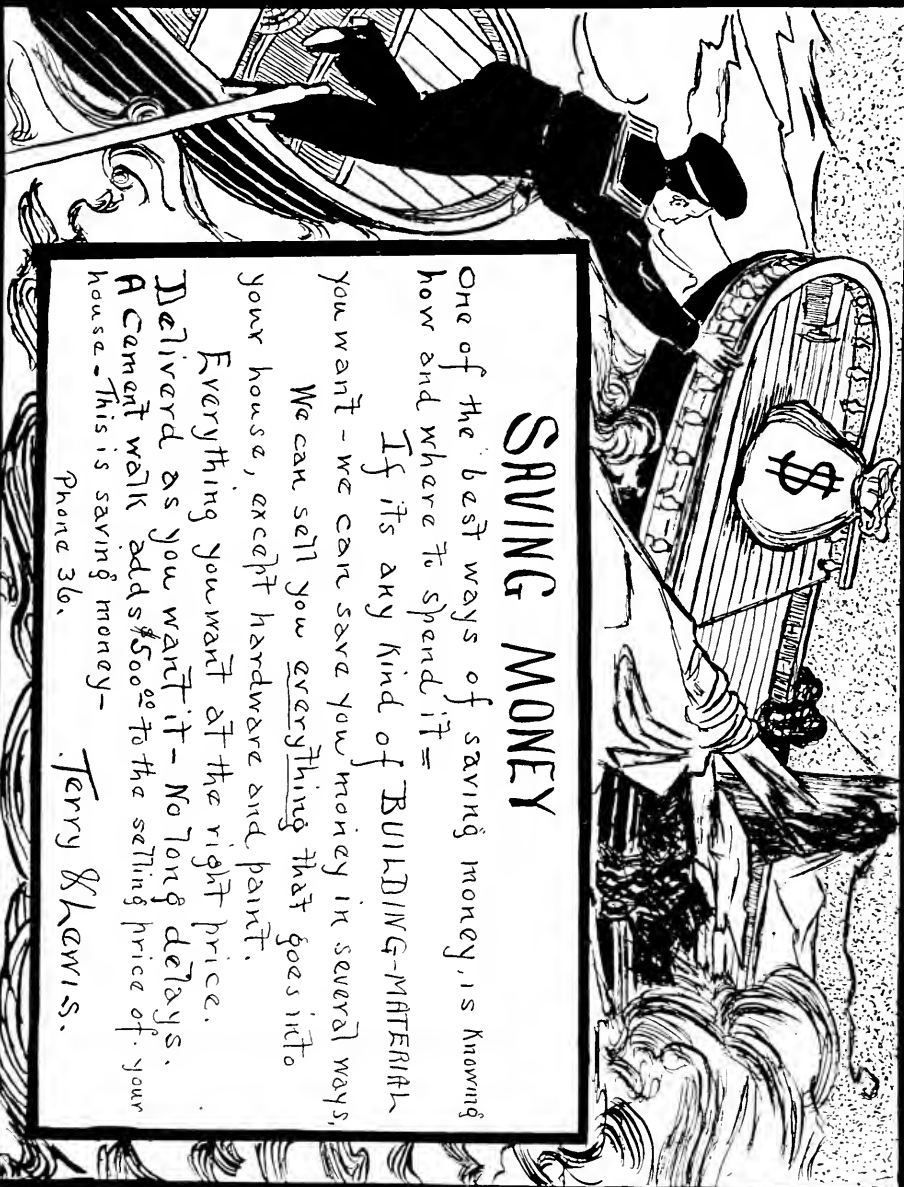 $
SAVING MONEY
One of the best ways of saving money, is knowing
how and where to spend it =
If its any kind of BUILDING-MATERIAL
you want - we can save you money in several ways,
We can sell you everything that goes into
your house, except hardware and paint.
Everything you want at the right price.
Deliverd as you want it - No long delays.
A cement walk adds $500.00 to the selling price of your
house - This is saving money -
Phone 36. Terry & Lewis.